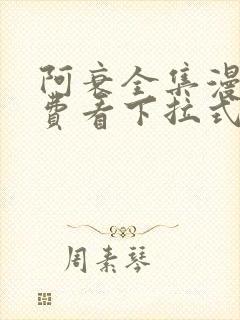 阿衰全集漫
费看下拉式
周素琴